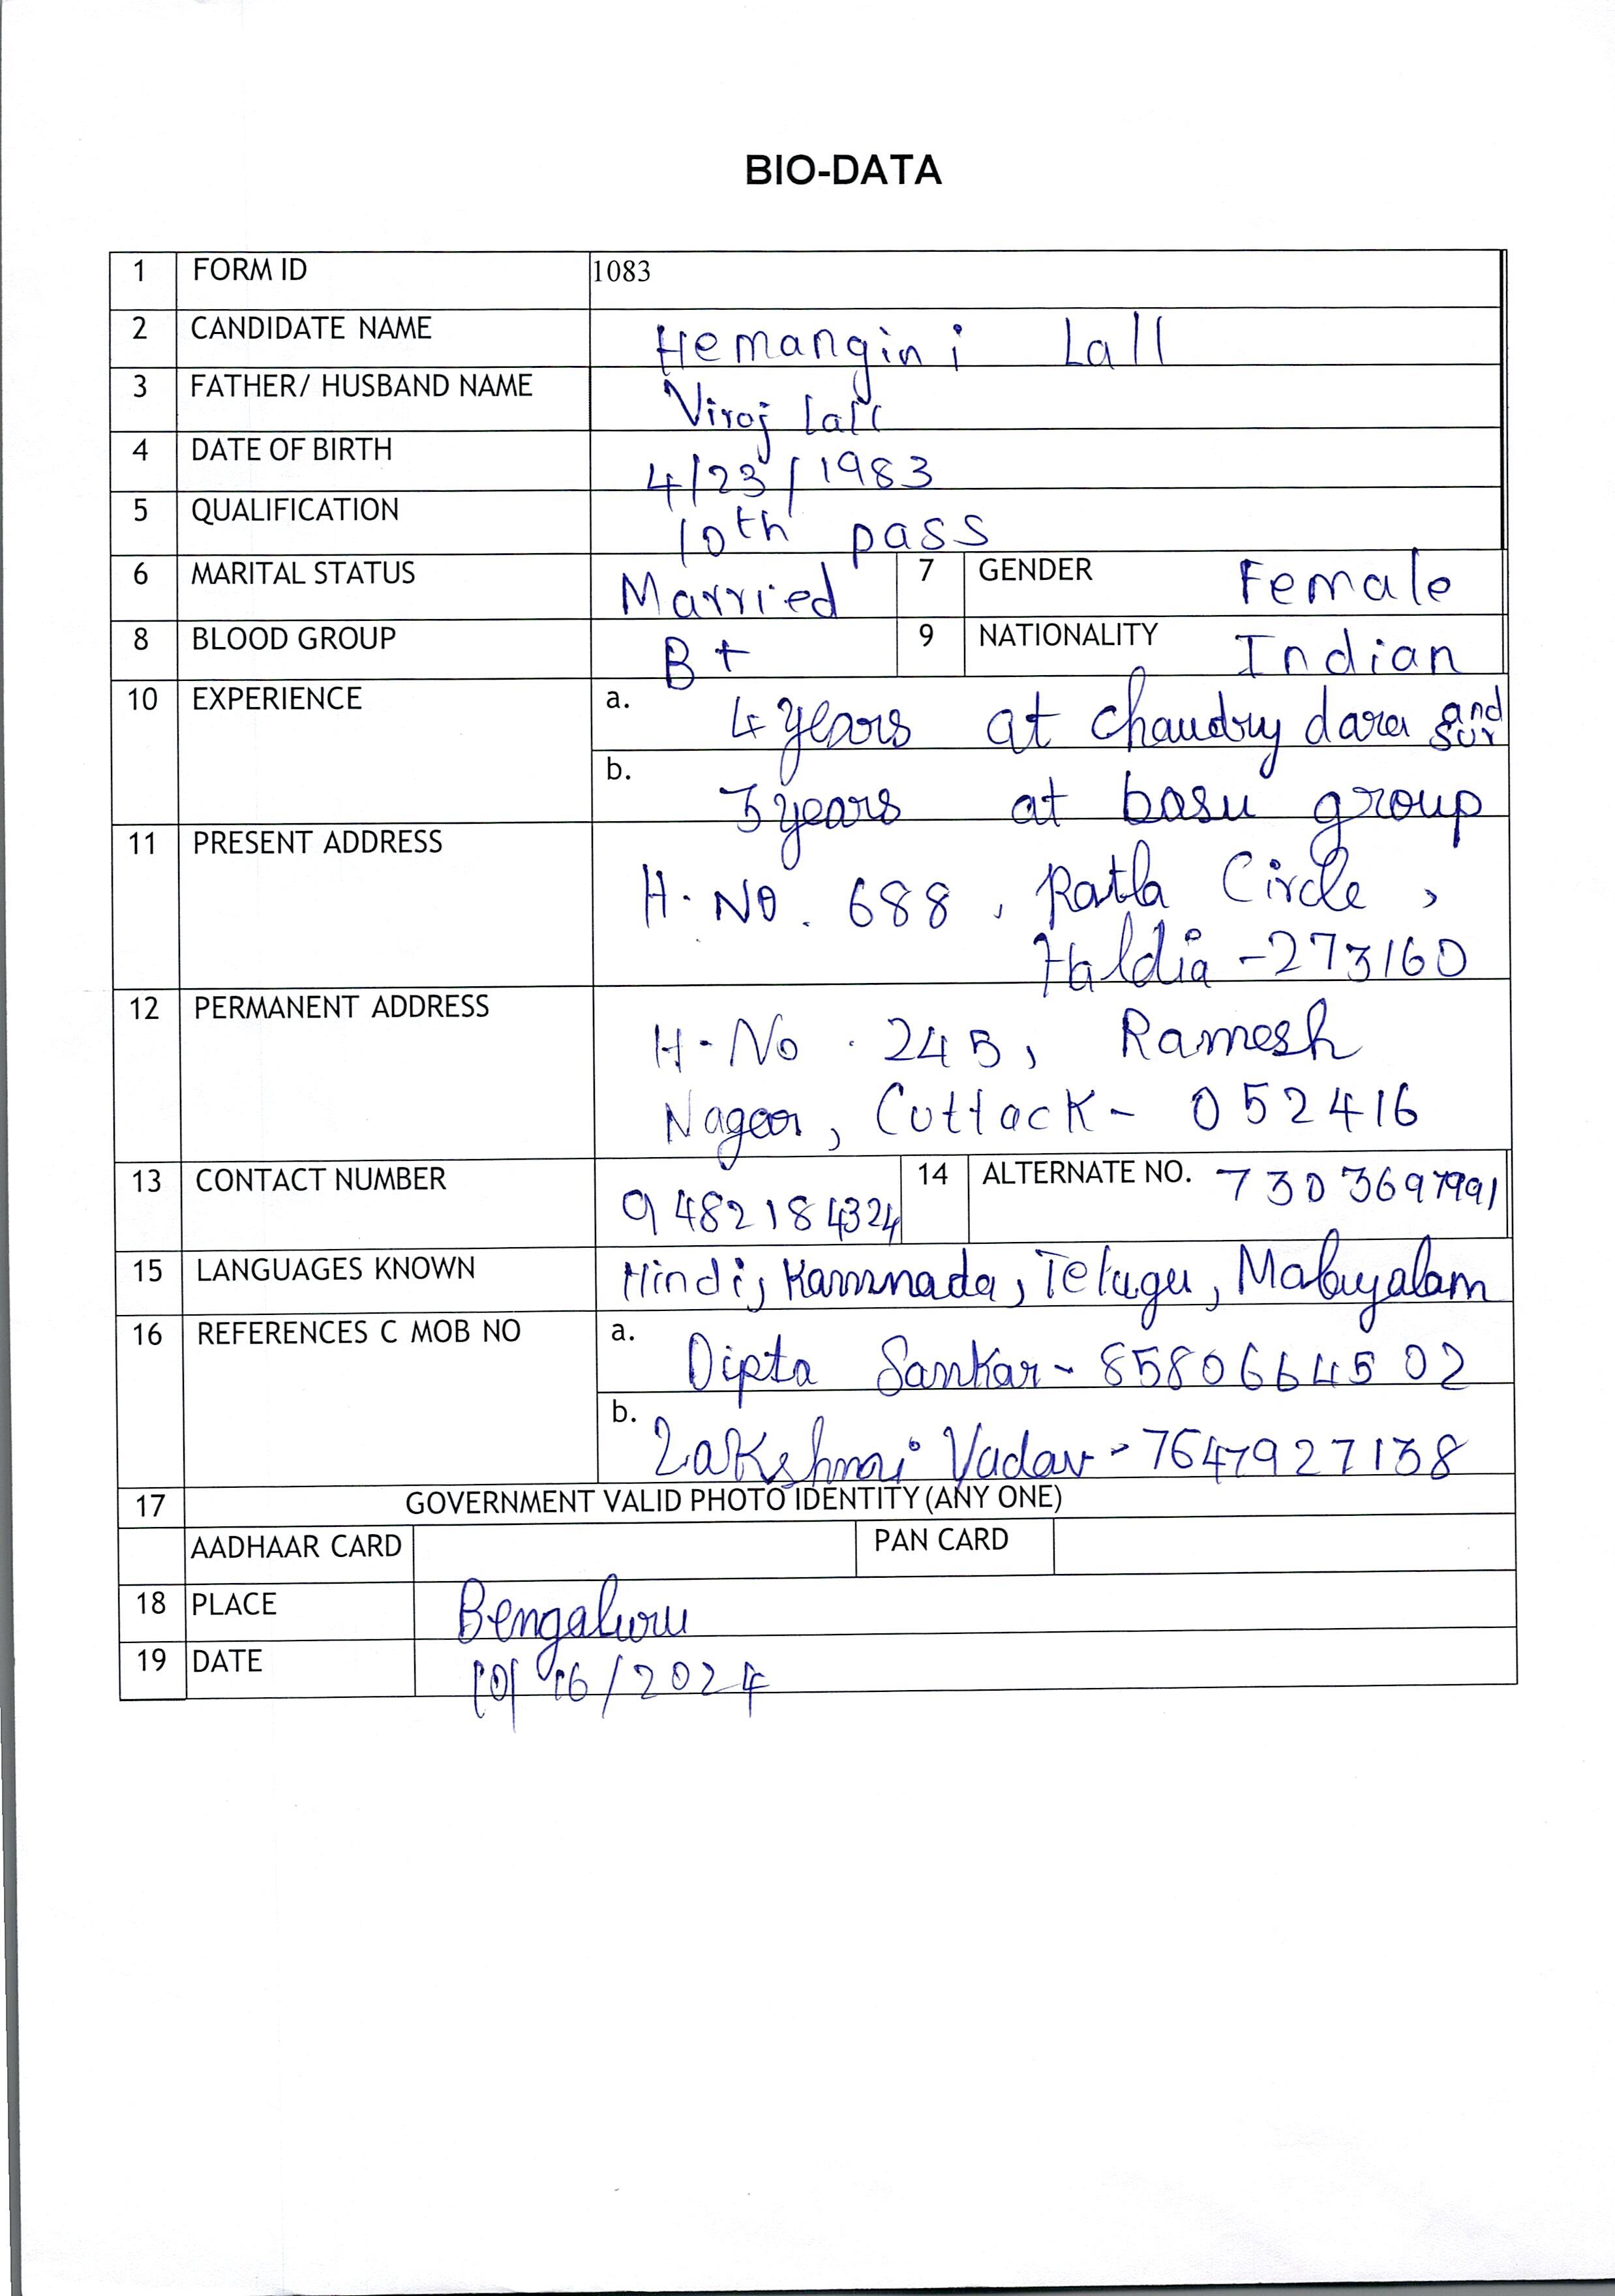 BIO-DATA
1 FORM ID 1083
2 CANDIDATE NAME Hemangini Lall
3 FATHER/ HUSBAND NAME Viroj Lall
4 DATE OF BIRTH 4/23/1983
5 QUALIFICATION 10th pass
6 MARITAL STATUS Married 7 GENDER Female
8 BLOOD GROUP B+ 9 NATIONALITY Indian
10 EXPERIENCE a. 4 years at chaudry dara and sur
b. 3 years at basu group
11 PRESENT ADDRESS H. NO. 688, Ratla Circle,
Haldia - 273160
12 PERMANENT ADDRESS H. No. 245, Ramesh
Nagar, Cuttack - 052416
13 CONTACT NUMBER 9482184324 14 ALTERNATE NO. 7303697991
15 LANGUAGES KNOWN Hindi, Kannada, Telugu, Malayalam
16 REFERENCES C MOB NO a. Dipta Sankar - 8580664502
b. Lakshmi Yadav - 7647927138
17 GOVERNMENT VALID PHOTO IDENTITY (ANY ONE)
AADHAAR CARD PAN CARD
18 PLACE Bengaluru
19 DATE 10/16/2024